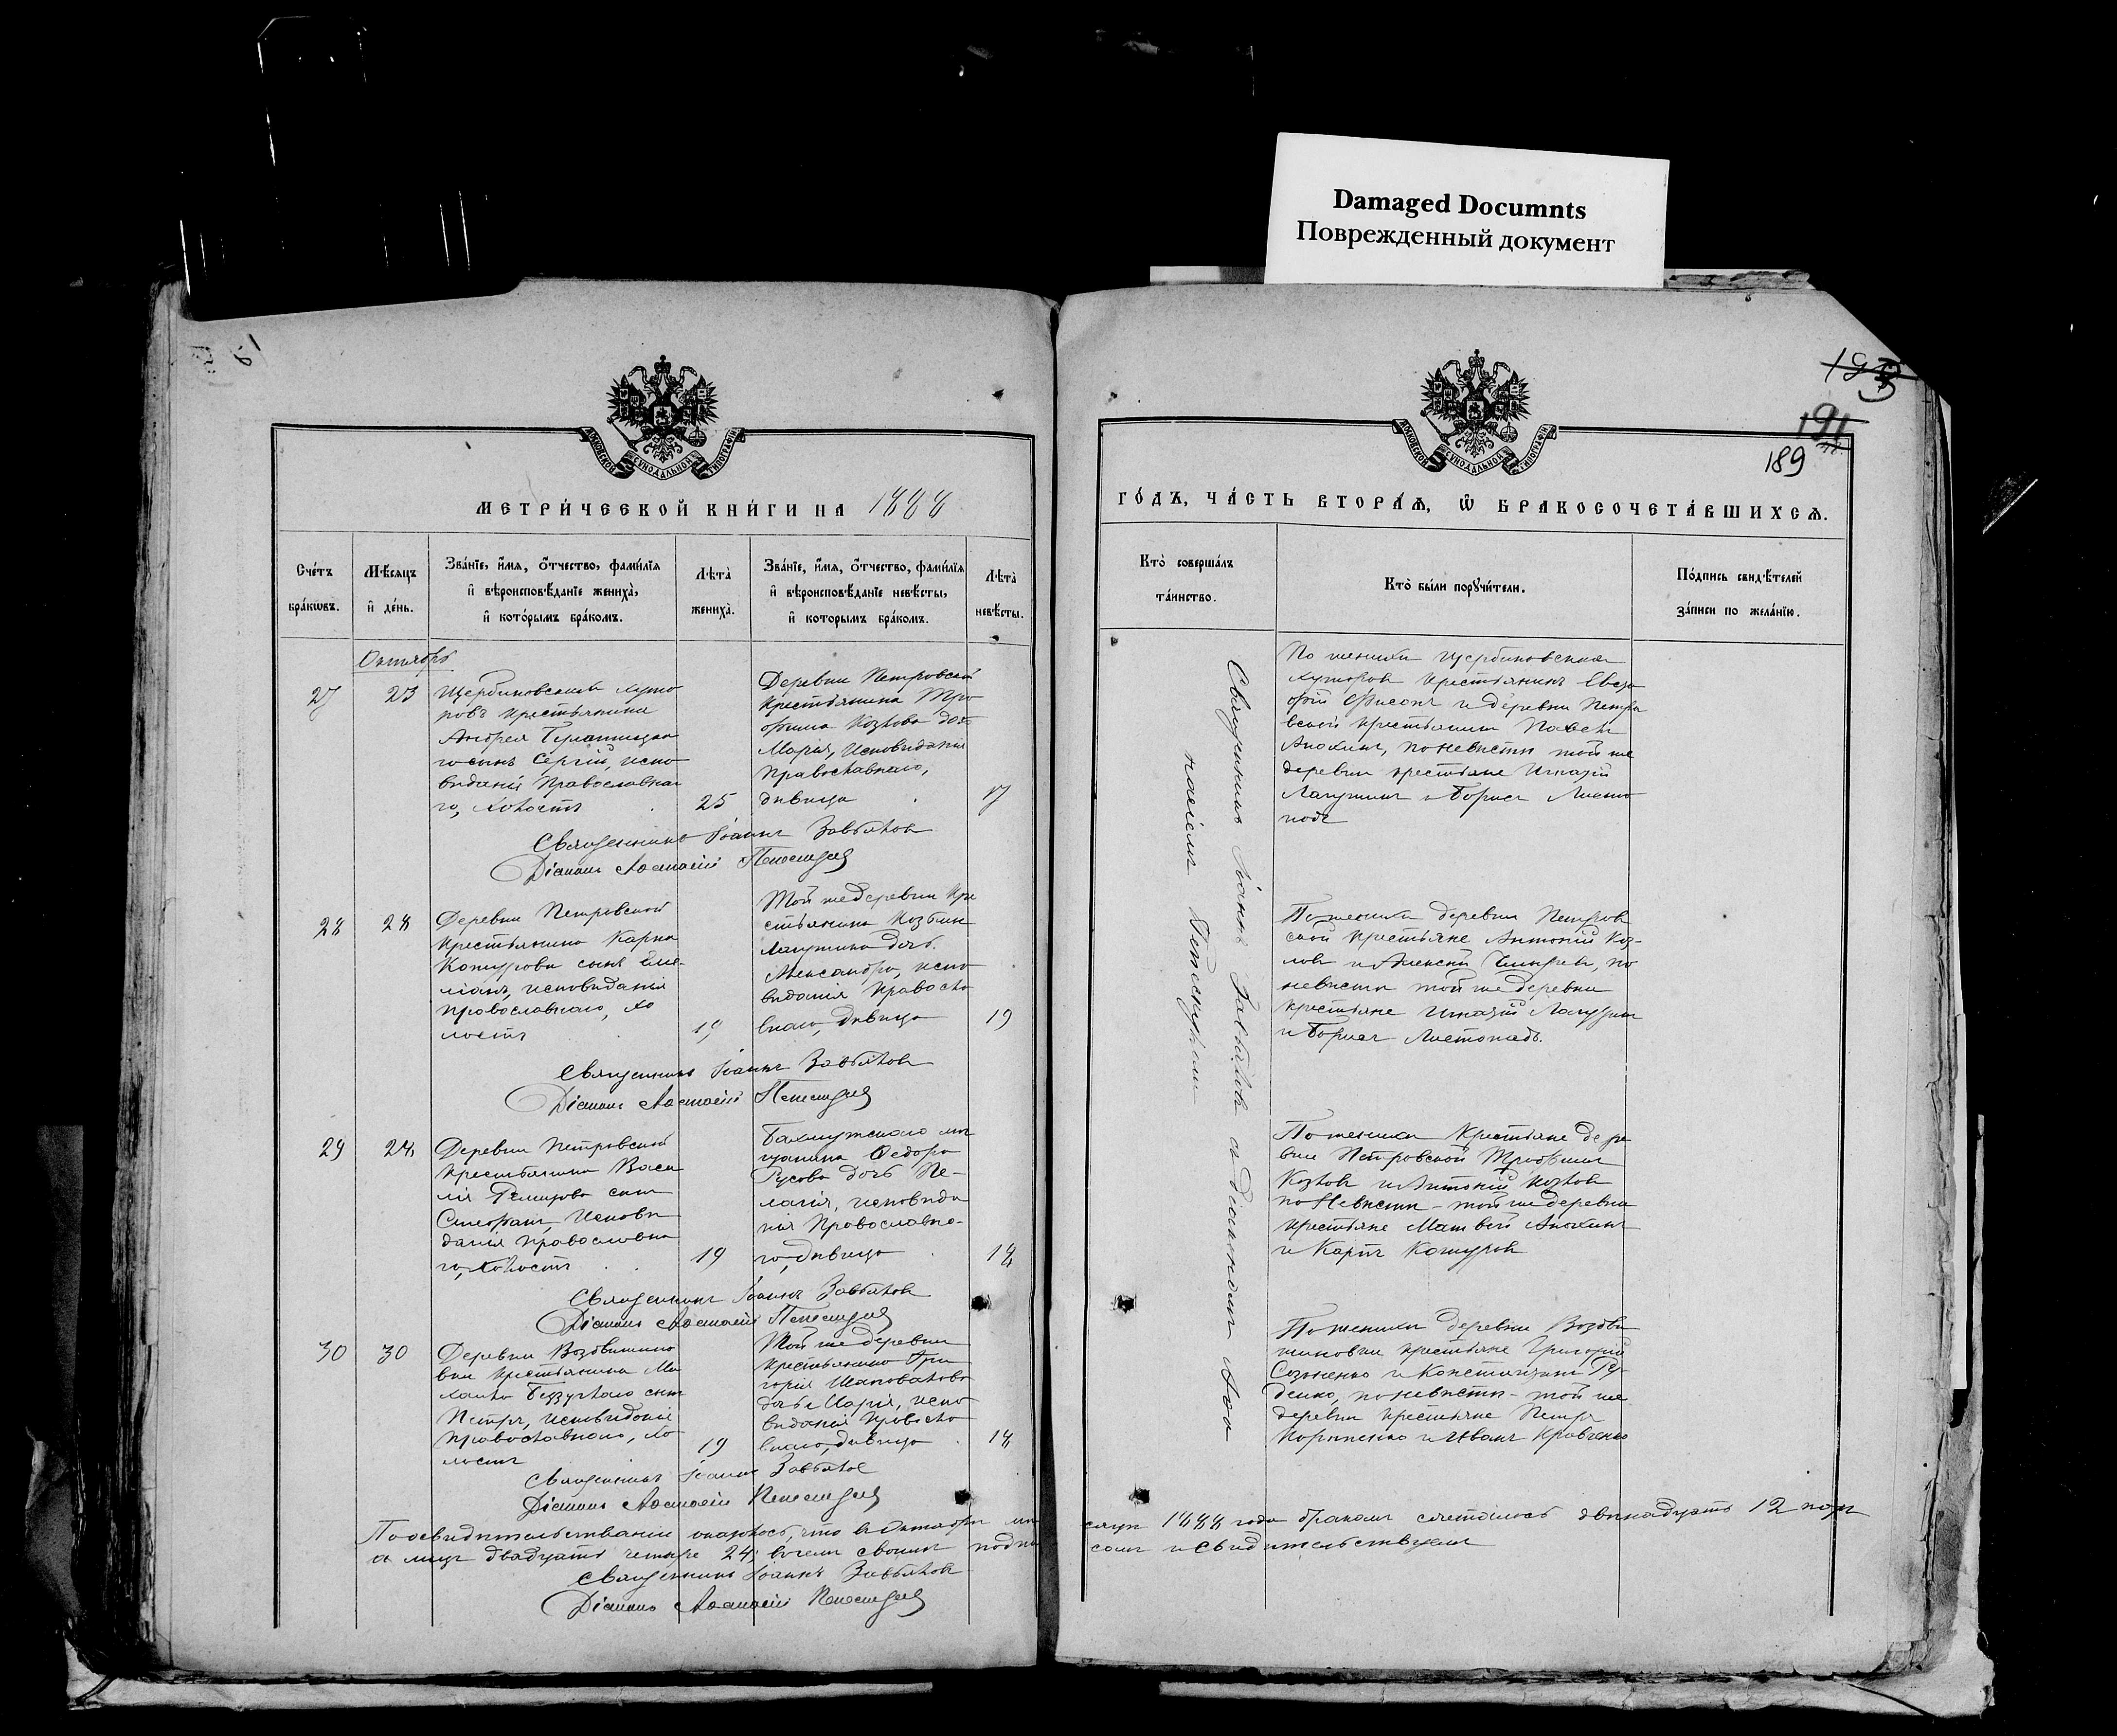 Damaged Documnts
Поврежденный документ
193
191
189
МОСКОВСКОЙ СѴНОДАЛЬНОЙ ТИПОГРАФІИ
МОСКОВСКОЙ СѴНОДАЛЬНОЙ ТИПОГРАФІИ
МЕТРИ́ЧЕСКОЙ КНИ́ГИ НА 1888
ГО́ДЪ, ЧА́СТЬ ВТОРА́Ѧ, Ѽ БРАКОСОЧЕТА́ВШИХСѦ.
Сче́тъ
бра́кѡвъ.
Мѣ́сѧцъ
и҆ де́нь.
Зва́нїе, и҆́мѧ, ѻ҆́тчество, фами́лїѧ
и҆ вѣроисповѣ́данїе жениха̀,
и҆ кото́рымъ бра́комъ.
Лѣта̀
жениха̀.
Зва́нїе, и҆́мѧ, ѻ҆́тчество, фами́лїѧ
и҆ вѣроисповѣ́данїе невѣ́сты,
и҆ кото́рымъ бра́комъ.
Лѣта̀
невѣ́сты.
Кто̀ соверша́лъ
та́инство.
Кто̀ бы́ли порꙋчи́тели.
По́дпись свидѣ́телей
за́писи по жела́нїю.
Октябрь
27
23
Щербиновскихъ хуто
ровъ крестьянина
Андрея
го сынъ Сергій, испо
виданія Православна
го, холостъ
25
Деревни Петровской
крестьянина Тро
фима Козлова дочь
Марія, исповиданія
Православнаго,
дивица
17
По женихи Щербиновскихъ
хуторовъ крестьянинъ
и деревни Петро
вской крестьянинъ Павелъ
Анохинъ, по невисти той же
деревни крестьяне Игнатій
Лагутинъ и Борисъ Листо
падъ
Священникъ Іоаннъ Завьяловъ
Діаконъ Аѳанасій
28
28
Деревни Петровской
крестьянина Карпа
Кошурова сынъ Еме-
ліанъ, исповиданія
православнаго, хо
лостъ
19
Той же деревни кре
стьянина Козьми
Лагутина дочь
Александра, испо
виданія правосла
внаго, дивица
19
По женихи деревни Петров
ской крестьяне Антоній Коз-
ловъ и Алексій по
невисти той же деревни
крестьяне Игнатій Лагутинъ
и Борисъ Листопадъ.
Священникъ Іоаннъ Завьяловъ
Діаконъ Аѳанасій
29
28
Деревни Петровской
крестьянина Васи
лія Ремизова сынъ
Стефанъ, Испови
данія православна
го, холостъ
19
Бахмутского мѣ
щанина Ѳедора
Русова дочь Пе-
лагія, исповида
нія Православна-
го, дивица
18
По женихи крестьяне дере
вни Петровской Трофимъ
Козловъ и Антоній Козловъ
по Невисти - той же деревни
крестьяне Матвей Анохинъ
и Карпъ Кошуровъ
Священникъ Іоаннъ Завьяловъ
Діаконъ Аѳанасій
30
30
Деревни Воздвижено
вки крестьянина Ма
Беззуглаго сынъ
Петръ, исповиданія
православнаго, хо
лостъ
19
Той же деревни
крестьянина Гри
горія Шаповалова
дочь Марія, испо
виданія Правосла
внаго, дивица
18
По женихи деревни Воздви
женовки крестьяне Григорій
и Константинъ Ру-
денко, по невисти - той же
деревни крестьяне Петръ
и Иванъ Кравченко
Священникъ Іоаннъ Завьяловъ
Діаконъ Аѳанасій
Священникъ Іоаннъ Завьяловъ и діакономъ Аѳа
насіемъ
По освидительствованіи оказалось, что въ Октябри мѣ
сяцѣ 1888 года бракомъ сочеталось двинадцать 12 паръ
а лицъ двадцать четыре 24; въ чемъ своимъ подпи
сомъ и свидительствуемъ
Священникъ Іоаннъ Завьяловъ
Діаконъ Аѳанасій